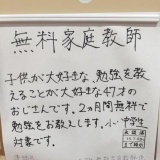 無料家庭教師
子供が大好きな、勉強を教
えることが大好きな47才の
おじさんです。2ヵ月間無料で
勉強をお教えします。小・中学生
対象です。